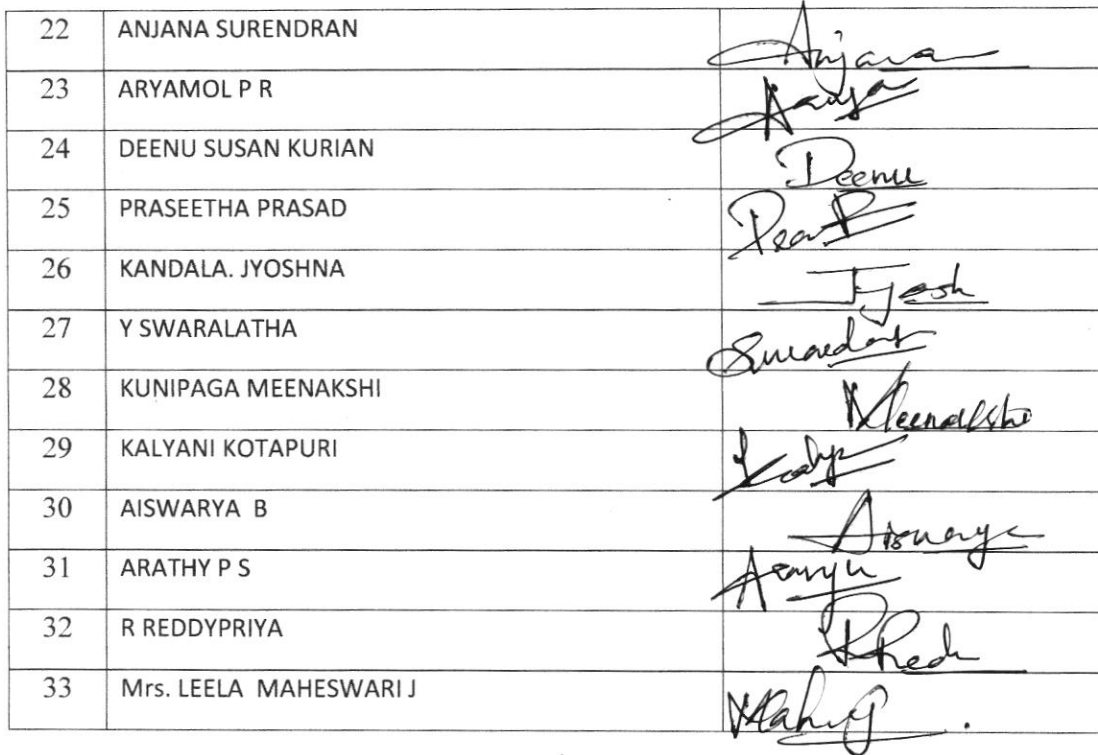 22 ANJANA SURENDRAN Anjana
23 ARYAMOL P R
24 DEENU SUSAN KURIAN Deenu
25 PRASEETHA PRASAD
26 KANDALA. JYOSHNA
27 Y SWARALATHA
28 KUNIPAGA MEENAKSHI Meenakshi
29 KALYANI KOTAPURI
30 AISWARYA B Aiswarya
31 ARATHY P S
32 R REDDYPRIYA
33 Mrs. LEELA MAHESWARI J